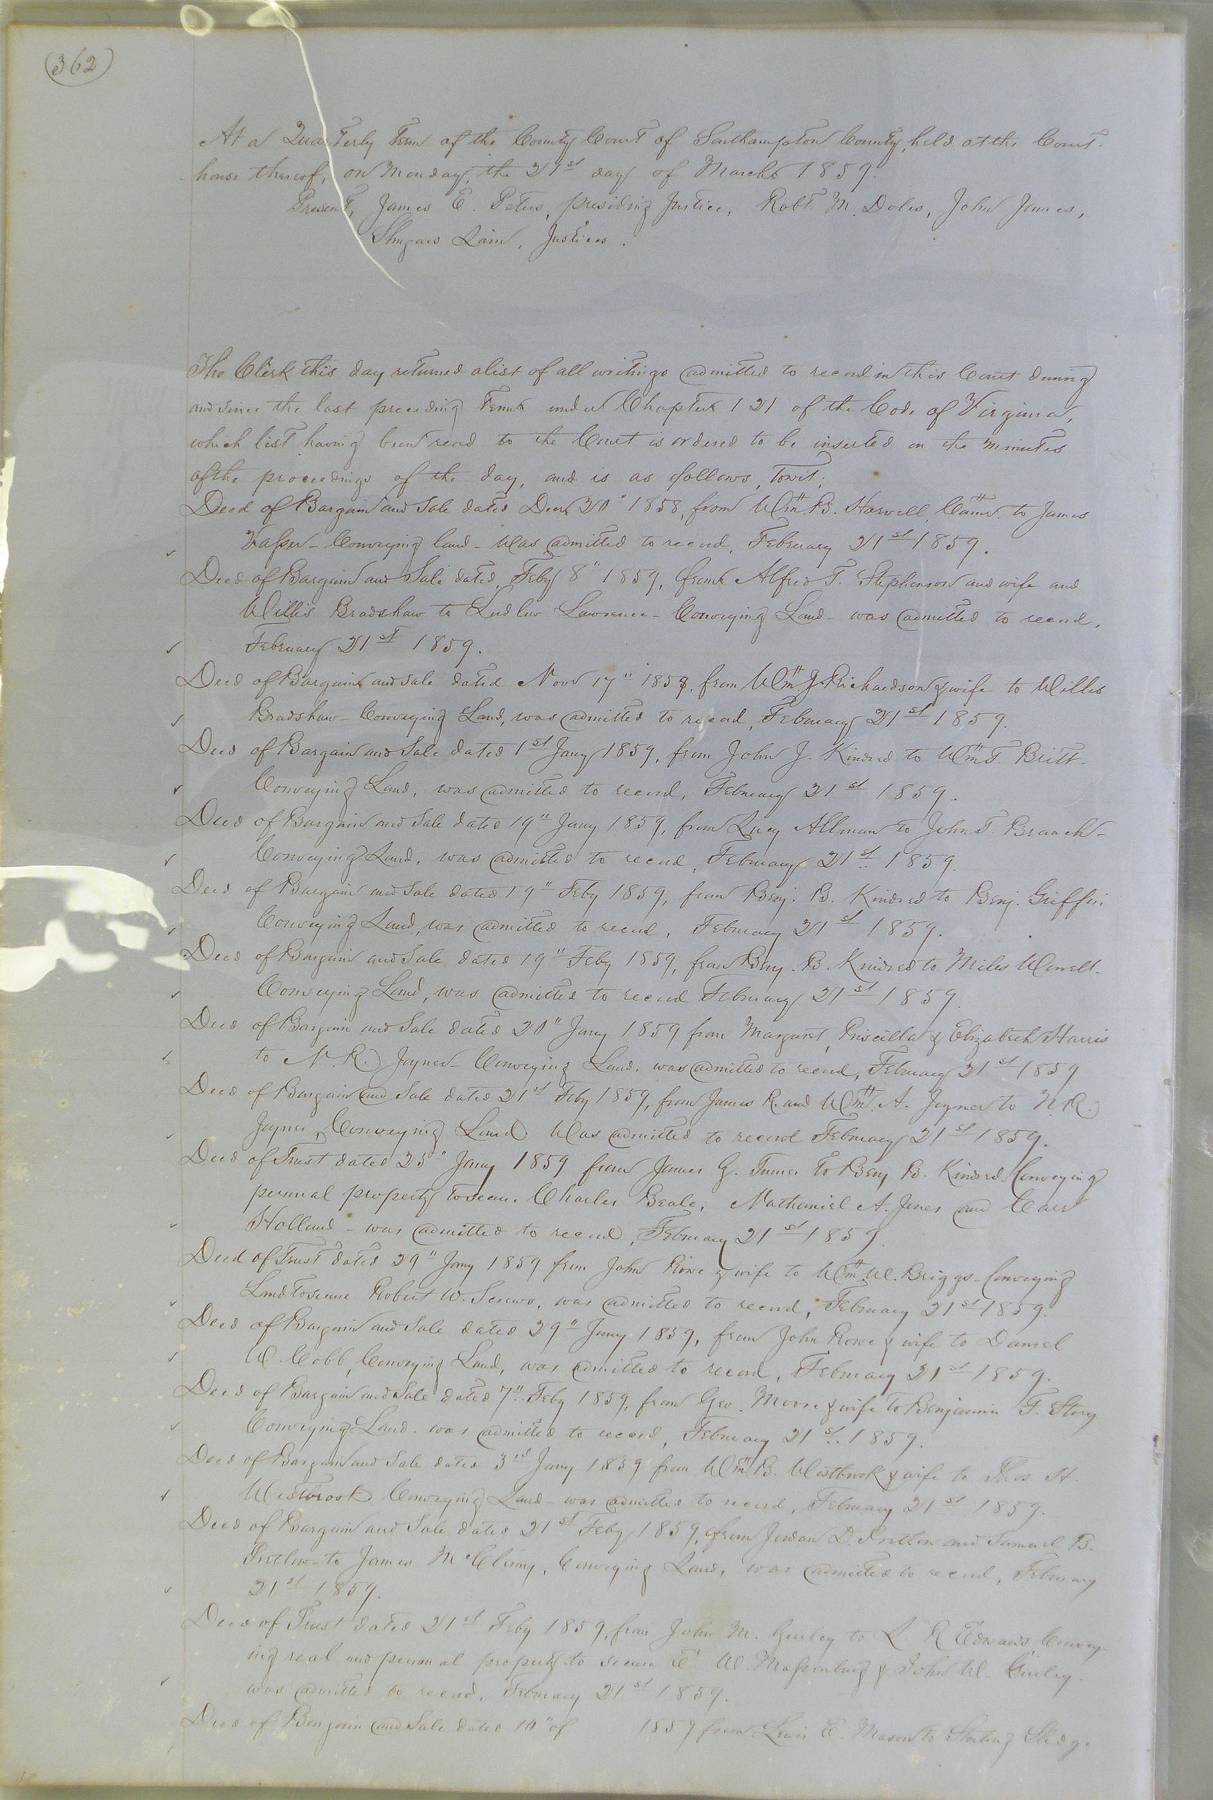 362
At a Quarterly Term of the County Court of Southampton County, held at the Court-
house thereof, on Monday, the 21st day of March 1859.
Present, James E. Peters, presiding Justice, Robt M. Doles, John James,
Lain, Justices.
The Clerk this day returned a list of all writings admitted to record in this Court during
and since the last preceding Term under Chapter 121 of the Code of Virginia,
which list having been read to the Court is ordered to be inserted in the minutes
of the proceedings of the day, and is as follows, Towit;
Deed of Bargain and Sale dated Decr 20" 1858, from Wm B. Harvell, to James
Trasser - Conveying land - Was admitted to record, February 21st 1859.
Deed of Bargain and Sale dated, Feby 8" 1859, from Alfred T. Stephenson and wife and
Willis Bradshaw to Ludlow Lawrence - Conveying Land - was admitted to record,
February 21st 1859.
Deed of Bargain and Sale dated Novr 17" 1858, from Wm J. Richardson & wife to Willis
Bradshaw - Conveying Land, was admitted to record, February 21st 1859.
Deed of Bargain and Sale dated 1st Jany 1859, from John J. Kindred to Wm T. Britt -
Conveying Land, was admitted to record, February 21st 1859.
Deed of Bargain and Sale dated 19" Jany 1859, from Lucy Allman to John T Branch -
Conveying Land, was admitted to record, February 21st 1859.
Deed of Bargain and Sale dated 19" Feby 1859, from Benj. B. Kindred to Benj. Griffin
Conveying Land, was admitted to record, February 21st 1859.
Deed of Bargain and Sale dated 19" Feby 1859, from Benj. B. Kindred to Miles
Conveying Land, was admitted to record February 21st 1859.
Deed of Bargain and Sale dated 20" Jany 1859 from Margaret, Priscilla & Elizabeth Harris
to N. R. Joyner - Conveying Land, was admitted to record, February 21st 1859
Deed of Bargain and Sale dated 21st Feby 1859, from James R. and Wm A. Joyner to N R.
Joyner, Conveying Land Was admitted to record February 21st 1859.
Deed of Trust dated 25" Jany 1859 from James G. Turner to Benj B. Kindred Conveying
personal property to secure Charles Beale, Nathaniel A. Jones and Carr
Holland - was admitted to record, February 21st 1859.
Deed of Trust dated 29" Jany 1859 from John Rowe & wife to Wm W. Briggs - Conveying
Land to secure Robert W. Screws, was admitted to record, February 21st 1859.
Deed of Bargain and Sale dated 29" Jany 1859, from John Rowe & wife to Daniel
W. Cobb, Conveying Land, was admitted to record, February 21st 1859.
Deed of Bargain and Sale dated 7" Feby 1859, from Geo. Moore & wife to Benjamin F. Story
Conveying Land, was admitted to record, February 21st 1859.
Deed of Bargain and Sale dated 3rd Jany 1859 from Wm B. Westbrook & wife to Thos H.
Westbrook Conveying Land - was admitted to record, February 21st 1859.
Deed of Bargain and Sale dated 21st Feby 1859, from Jordan D. Pretlow and Samuel B.
Pretlow - to James McClenny, Conveying Land, was admitted to record, February
21st 1859.
Deed of Trust dated 21st Feby 1859, from John M. Gurley to L R Edwards Convey-
ing real and personal property to secure E W Massenburg & John W. Gurley
was admitted to record, February 21st 1859.
Deed of Bargain and Sale dated 10" of 1859 from Lewis E. Mason to Sledge